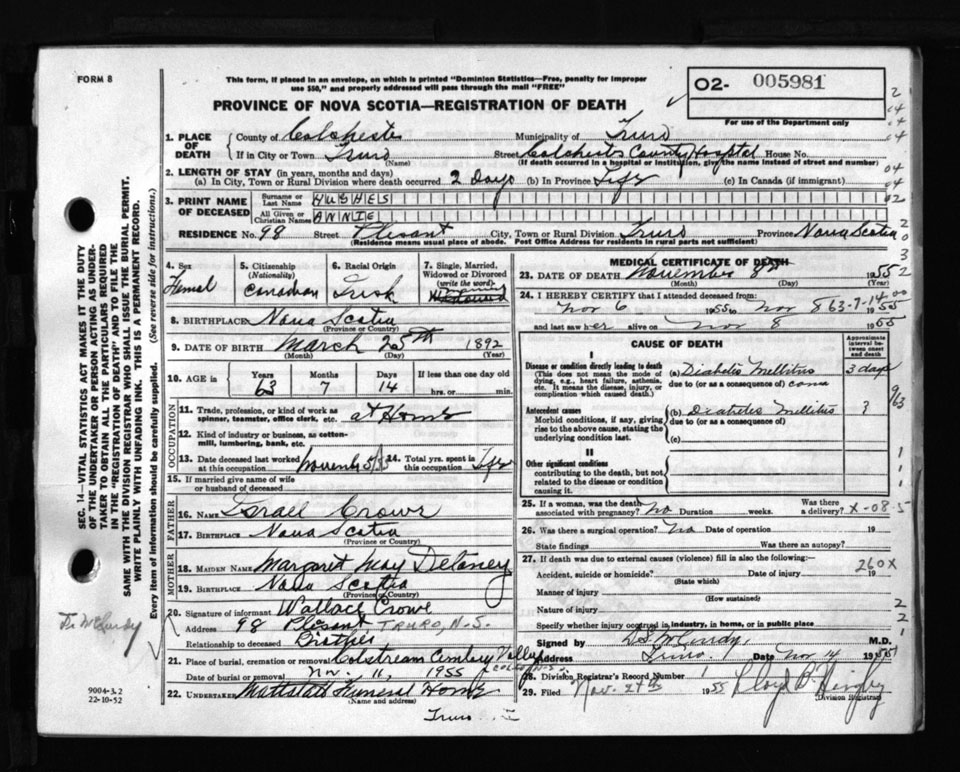 FORM 8
This form, if placed in an envelope, on which is printed "Dominion Statistics—Free, penalty for improper
use $50," and properly addressed will pass through the mail "FREE"
PROVINCE OF NOVA SCOTIA—REGISTRATION OF DEATH
O2- 005981
For use of the Department only
SEC. 14—VITAL STATISTICS ACT MAKES IT THE DUTY
OF THE UNDERTAKER OR PERSON ACTING AS UNDER-
TAKER TO OBTAIN ALL THE PARTICULARS REQUIRED
IN THE "REGISTRATION OF DEATH" AND TO FILE THE
SAME WITH THE DIVISION REGISTRAR WHO SHALL ISSUE THE BURIAL PERMIT.
WRITE PLAINLY WITH UNFADING INK. THIS IS A PERMANENT RECORD.
Every item of information should be carefully supplied. (See reverse side for instructions.)
1. PLACE OF DEATH County of Colchester Municipality of Truro
If in City or Town Truro (Name) Street Colchester County Hospital House No.
(If death occurred in a hospital or institution, give the name instead of street and number)
2. LENGTH OF STAY (in years, months and days)
(a) In City, Town or Rural Division where death occurred 2 Days (b) In Province Life (c) In Canada (if immigrant)
3. PRINT NAME OF DECEASED Surname or Last Name HUGHES
All Given or Christian Names ANNIE
RESIDENCE No. 98 Street Plesant City, Town or Rural Division Truro Province Nova Scotia
(Residence means usual place of abode. Post Office Address for residents in rural parts not sufficient)
4. Sex Femal
5. Citizenship (Nationality) Canadian
6. Racial Origin Irish
7. Single, Married, Widowed or Divorced (write the word)
8. BIRTHPLACE Nova Scotia
(Province or Country)
9. DATE OF BIRTH March 25th 1892
(Month) (Day) (Year)
10. AGE in Years 63 Months 7 Days 14 If less than one day hrs. or min.
OCCUPATION
11. Trade, profession, or kind of work as spinner, teamster, office clerk, etc. at Home
12. Kind of industry or business, as cotton-mill, lumbering, bank, etc.
13. Date deceased last worked at this occupation
14. Total yrs. spent in this occupation Life
15. If married give name of wife or husband of deceased
FATHER
16. NAME Israel Crowe
17. BIRTHPLACE Nova Scotia
(Province or Country)
MOTHER
18. MAIDEN NAME Margaret May Delaney
19. BIRTHPLACE Nova Scotia
(Province or Country)
20. Signature of informant Wallace Crowe
Address 98 Plesant TRURO, N.S.
Relationship to deceased
21. Place of burial, cremation or removal
Date of burial or removal Nov. 11, 1955
22. UNDERTAKER Mattatall Funeral Home
(Name and address)
Truro
9004-3.2
22-10-52
Dr McCurdy
MEDICAL CERTIFICATE OF DEATH
23. DATE OF DEATH November 8th 1955
(Month) (Day) (Year)
24. I HEREBY CERTIFY that I attended deceased from:
Nov 6 1955 to Nov 8 1955
63-7-14
and last saw her alive on Nov 8 1955
CAUSE OF DEATH
Approximate interval between onset and death
I
Disease or condition directly leading to death
(This does not mean the mode of dying, e.g., heart failure, asthenia, etc. It means the disease, injury, or complication which caused death.)
(a) Diabetes Mellitus 3 days
due to (or as a consequence of) coma
Antecedent causes
Morbid conditions, if any, giving rise to the above cause, stating the underlying condition last.
(b) Diabetes Mellitus ?
due to (or as a consequence of)
(c)
II
Other significant conditions
contributing to the death, but not related to the disease or condition causing it.
25. If a woman, was the death associated with pregnancy? No Duration weeks. Was there a delivery?
X-08-5
26. Was there a surgical operation? No Date of operation 19
State findings Was there an autopsy?
27. If death was due to external causes (violence) fill in also the following:—
Accident, suicide or homicide? Date of injury 19
(State which)
260X
Manner of injury
(How sustained)
Nature of injury
Specify whether injury occurred in industry, in home, or in public place
Signed by D.S. McCurdy M.D.
Address Truro Date Nov 14 1955
28. Division Registrar's Record Number 1
29. Filed Nov. 27th 1955 Lloyd
(Division Registrar)